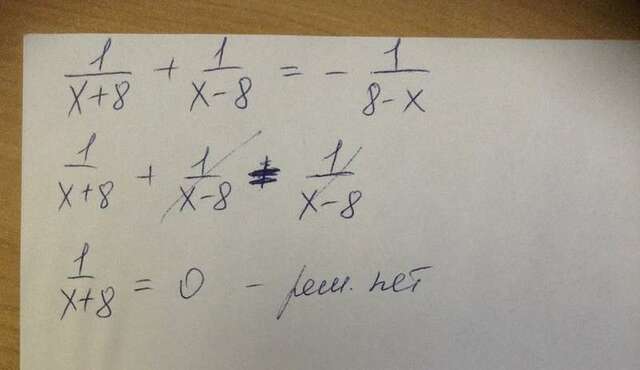 1/(x+8) + 1/(x-8) = - 1/(8-x)
1/(x+8) + 1/(x-8) = 1/(x-8)
1/(x+8) = 0 - реш. нет